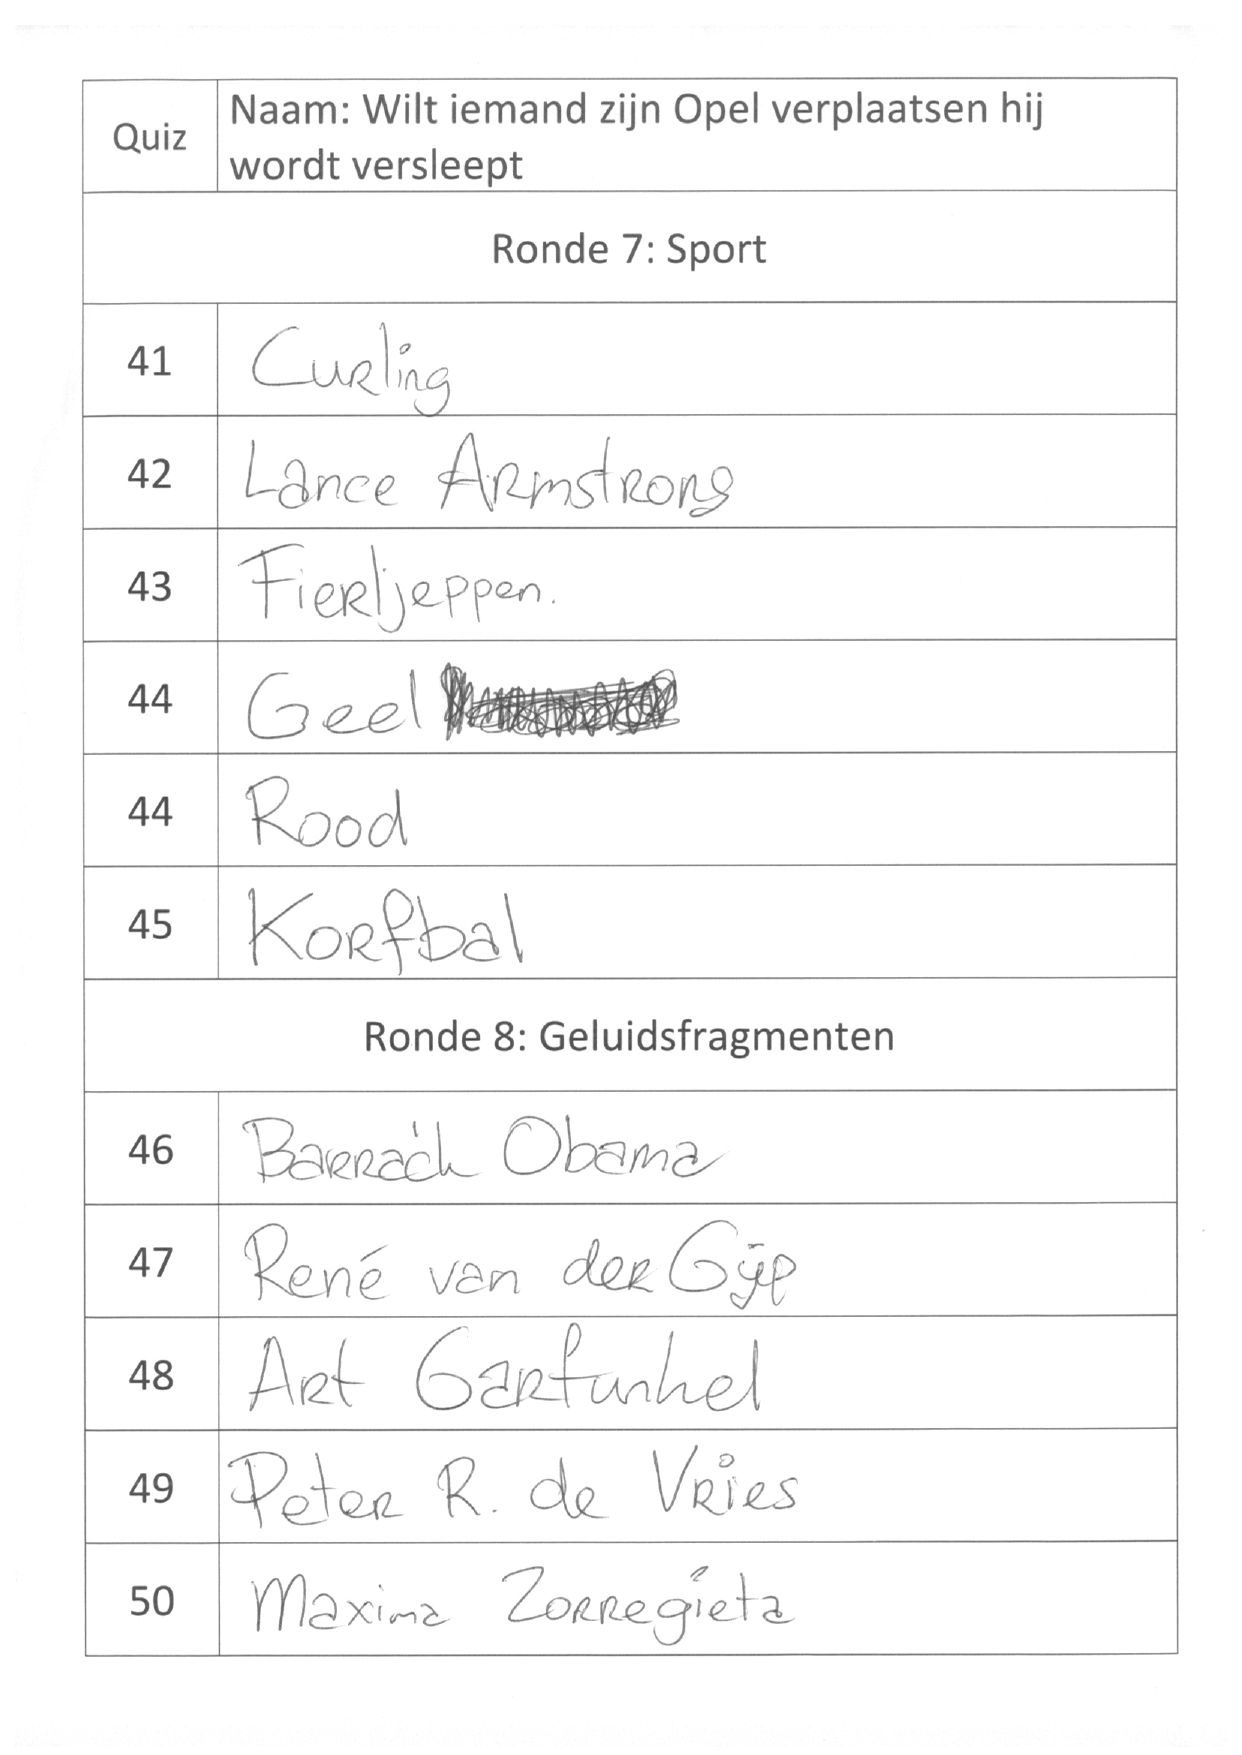 Quiz
Naam: Wilt iemand zijn Opel verplaatsen hij
wordt versleept
Ronde 7: Sport
41 Curling
42 Lance Armstrong
43 Fierljeppen.
44 Geel
44 Rood
45 Korfbal
Ronde 8: Geluidsfragmenten
46 Barrack Obama
47 René van der Gijp
48 Art Garfunkel
49 Peter R. de Vries
50 Maxima Zorregieta